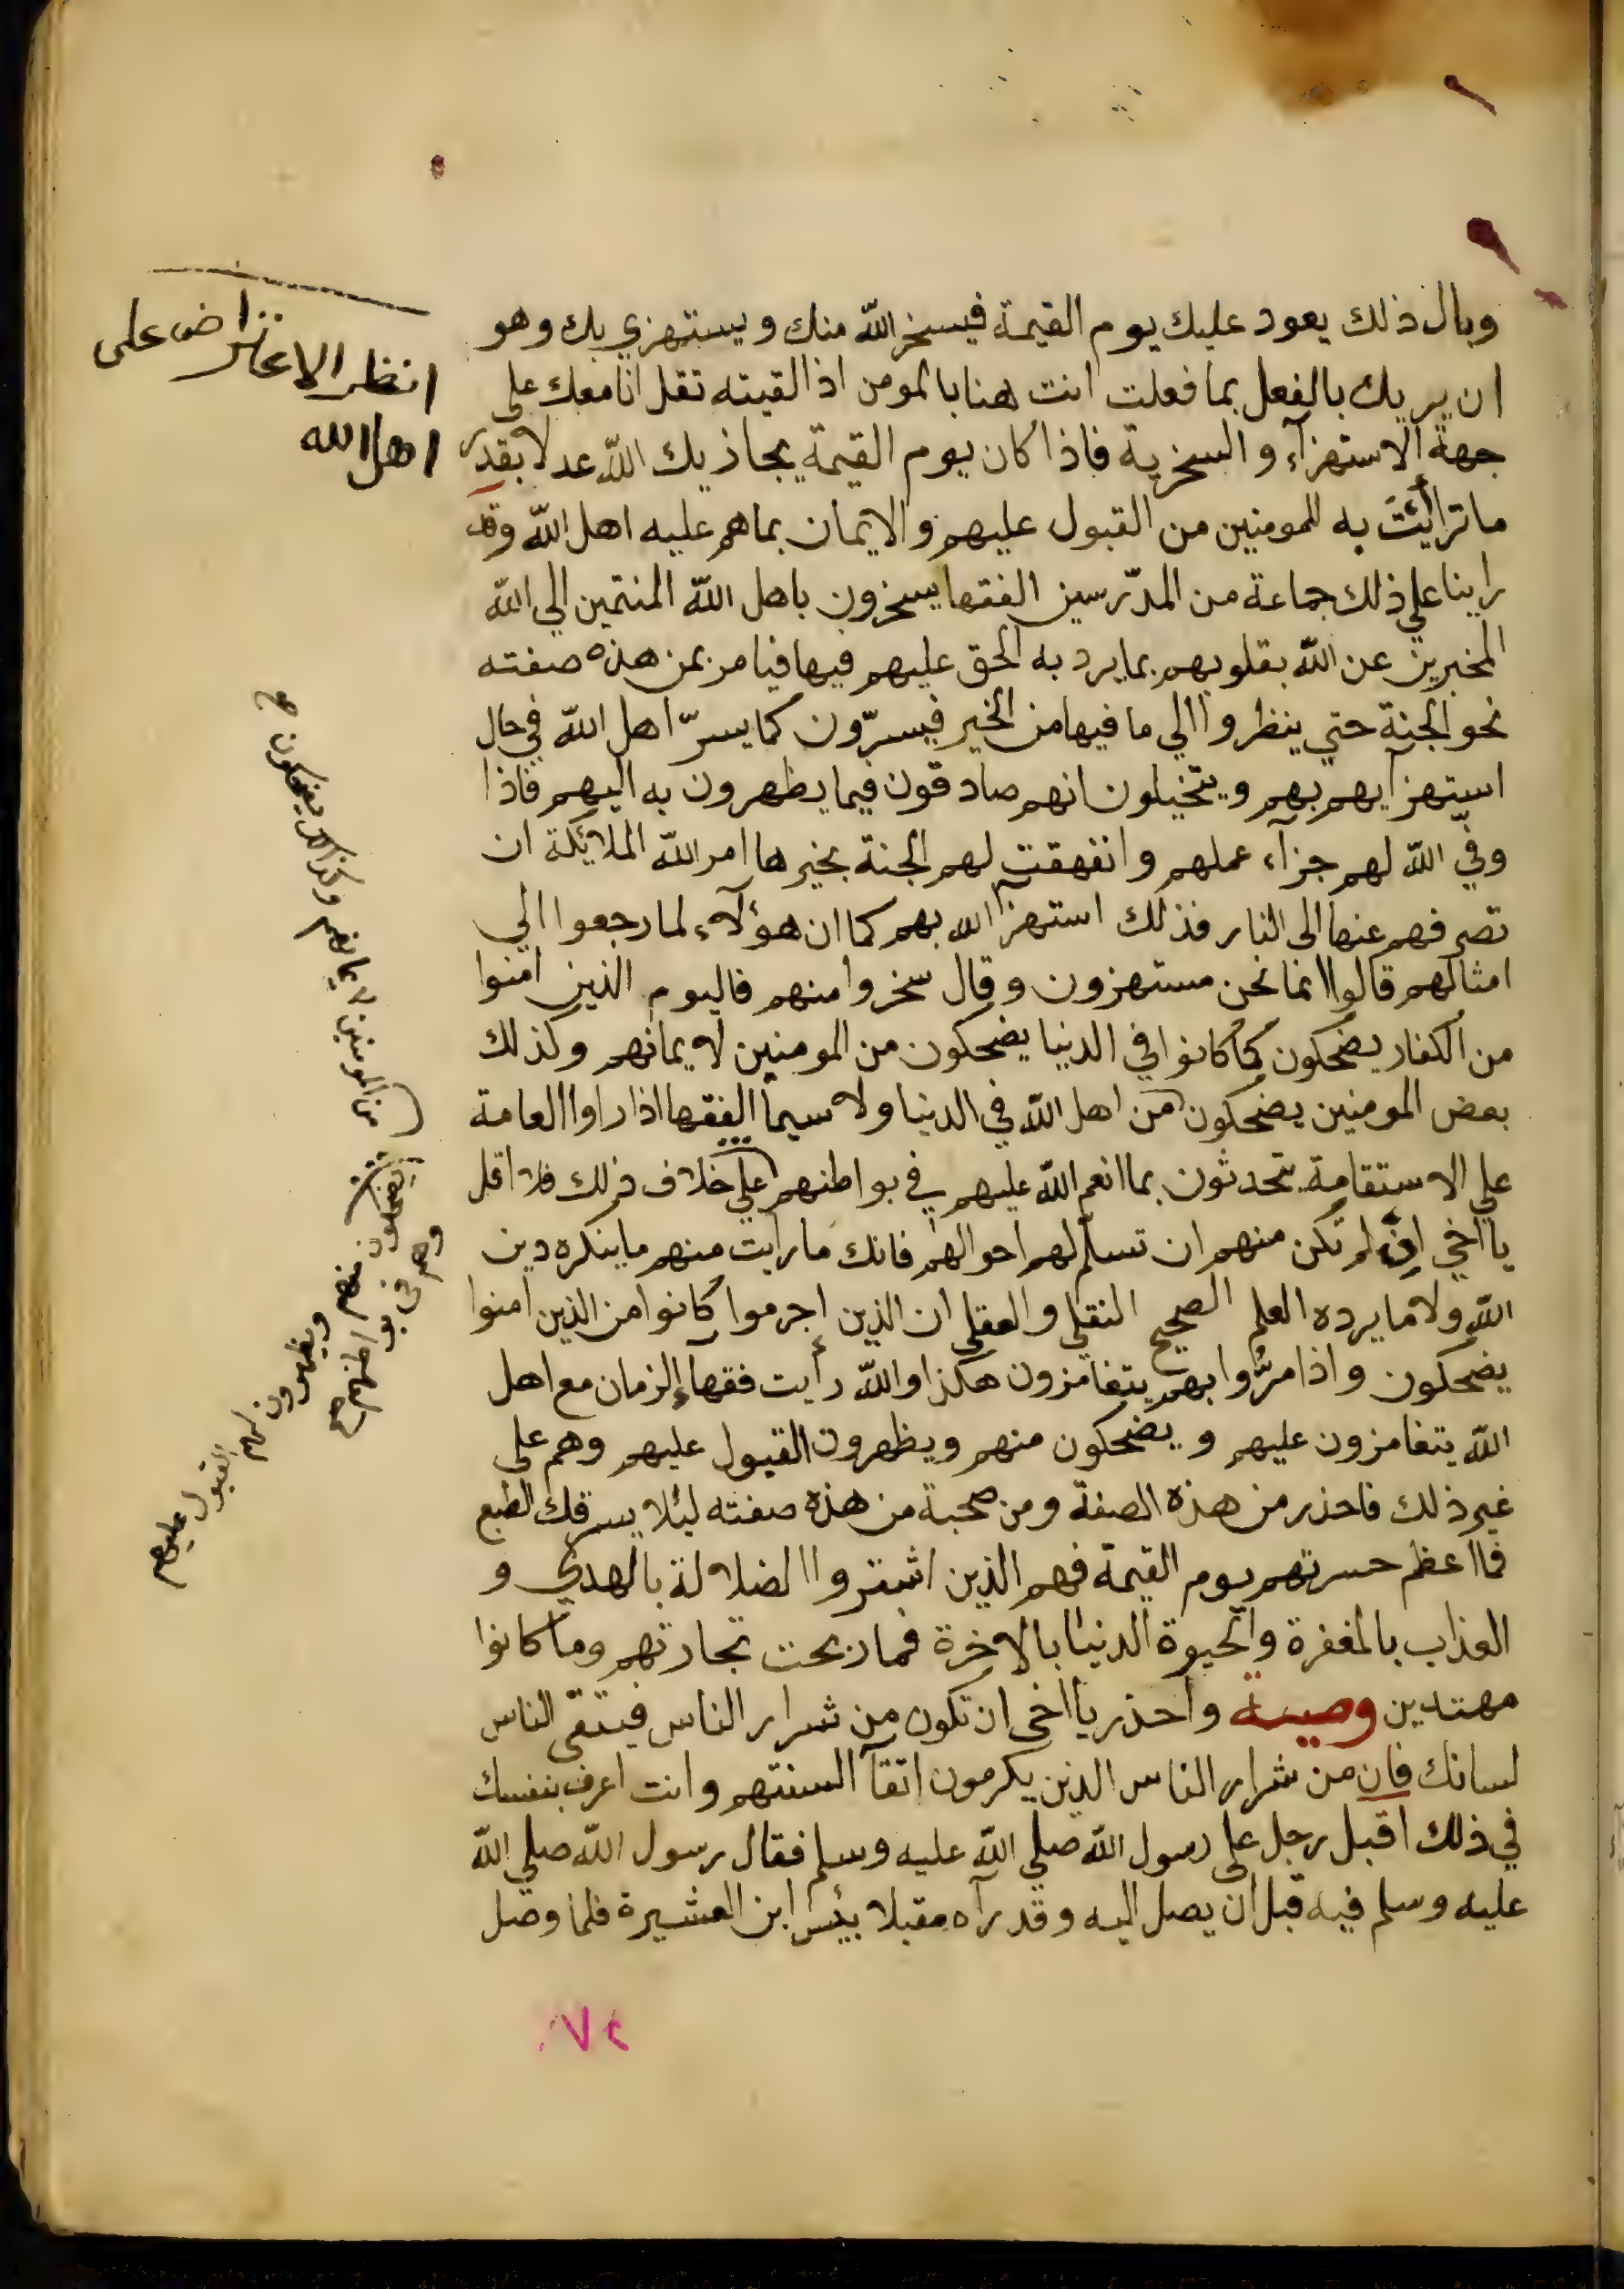 وبال ذلك يعود عليك يوم القيمة فيسخر الله منك ويستهزي بك وهو
ان يريك بالفعل بما فعلت انت هنا بالمومن اذا لقيته تقل انا معك على
جهة الاستهزآء والسخرية فاذا كان يوم القيمة يجازيك الله عدلا بقدر
ما ترائت به للمومنين من القبول عليهم والايمان بما هم عليه اهل الله وقد
راينا علي ذلك جماعة من المدّرسين الفقها يسخرون باهل الله المنتمين الي الله
المخبرين عن الله بقلوبهم بما يرد به الحق عليهم فيها فيامر بمن هذه صفته
نحو الجنة حتي ينظروا الي ما فيها من الخير فيسرّون كما يسرّ اهل الله في حال
استهزآيهم بهم ويتخيلون انهم صادقون فيما يظهرون به اليهم فاذا
وفّي الله لهم جزآء عملهم وانفهقت لهم الجنة بخيرها امر الله الملائكة ان
تصرفهم عنها الى النار فذلك استهزآ الله بهم كما ان هؤلآء لما رجعوا الي
امثالهم قالوا انما نحن مستهزون وقال سخروا منهم فاليوم الذين امنوا
من الكفار يضحكون كما كانوا في الدنيا يضحكون من المومنين لايمانهم وكذلك
بعض المومنين يضحكون من اهل الله في الدنيا ولا سيما الفقها اذا راوا العامة
علي الاستقامة يتحدثون بما انعم الله عليهم في بواطنهم علي خلاف ذلك فلا اقل
يا اخي ان لم تكن منهم ان تسلّم لهم احوالهم فانك ما رايت منهم ما ينكره دين
الله ولا ما يرده العلم الصحيح النقلي والعقلي ان الذين اجرموا كانوا من الذين امنوا
يضحكون واذا مرّوا بهم يتغامزون هكذا والله رأيت فقهآء الزمان مع اهل
الله يتغامزون عليهم ويضحكون منهم ويظهرون القبول عليهم وهم على
غير ذلك فاحذر من هذه الصفة ومن صحبة من هذه صفته ليئلا يسرقك الطبع
فما اعظم حسرتهم يوم القيمة فهم الذين اشتروا الضلالة بالهدي و
العذاب بالمغفرة والحيوة الدنيا بالاخرة فما ربحت تجارتهم وما كانوا
مهتدين وصية واحذر يا اخي ان تكون من شرار الناس فيتقي الناس
لسانك فان من شرار الناس الذين يكرمون اتقآ السنتهم وانت اعرف بنفسك
في ذلك اقبل رجل على رسول الله صلي الله عليه وسلم فقال رسول الله صلي الله
عليه وسلم فيه قبل ان يصل اليه وقد رآه مقبلا بئس ابن العشيرة فلما وصل
انظر الاعتراض على
اهل الله
من المومنين لايمانهم وكذلك يضحكون
يضحكون منهم ويظهرون لهم القبول عليهم
وهم في بواطنهم
٧٢